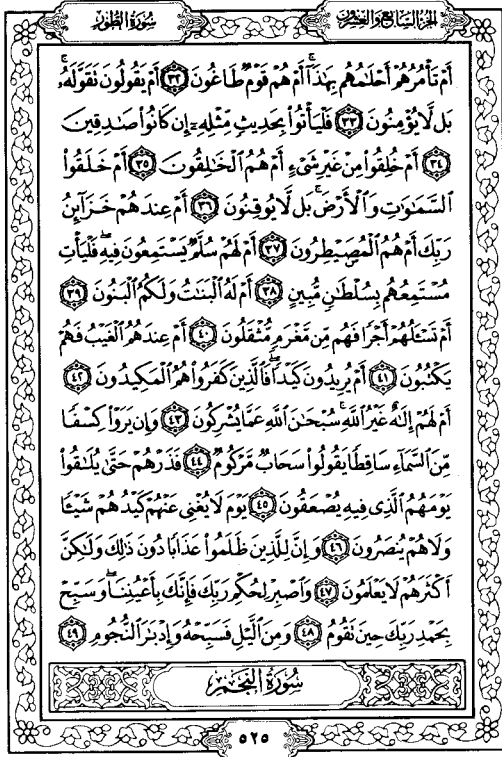 الجزء السابع والعشرون
سورة الطور
أَمْ تَأْمُرُهُمْ أَحْلَامُهُم بِهَٰذَا ۚ أَمْ هُمْ قَوْمٌ طَاغُونَ ٣٢ أَمْ يَقُولُونَ تَقَوَّلَهُ ۚ
بَل لَّا يُؤْمِنُونَ ٣٣ فَلْيَأْتُوا بِحَدِيثٍ مِّثْلِهِ إِن كَانُوا صَادِقِينَ
٣٤ أَمْ خُلِقُوا مِنْ غَيْرِ شَيْءٍ أَمْ هُمُ الْخَالِقُونَ ٣٥ أَمْ خَلَقُوا
السَّمَاوَاتِ وَالْأَرْضَ ۚ بَل لَّا يُوقِنُونَ ٣٦ أَمْ عِندَهُمْ خَزَائِنُ
رَبِّكَ أَمْ هُمُ الْمُصَيْطِرُونَ ٣٧ أَمْ لَهُمْ سُلَّمٌ يَسْتَمِعُونَ فِيهِ ۖ فَلْيَأْتِ
مُسْتَمِعُهُم بِسُلْطَانٍ مُّبِينٍ ٣٨ أَمْ لَهُ الْبَنَاتُ وَلَكُمُ الْبَنُونَ ٣٩
أَمْ تَسْأَلُهُمْ أَجْرًا فَهُم مِّن مَّغْرَمٍ مُّثْقَلُونَ ٤٠ أَمْ عِندَهُمُ الْغَيْبُ فَهُمْ
يَكْتُبُونَ ٤١ أَمْ يُرِيدُونَ كَيْدًا ۖ فَالَّذِينَ كَفَرُوا هُمُ الْمَكِيدُونَ ٤٢
أَمْ لَهُمْ إِلَٰهٌ غَيْرُ اللَّهِ ۚ سُبْحَانَ اللَّهِ عَمَّا يُشْرِكُونَ ٤٣ وَإِن يَرَوْا كِسْفًا
مِّنَ السَّمَاءِ سَاقِطًا يَقُولُوا سَحَابٌ مَّرْكُومٌ ٤٤ فَذَرْهُمْ حَتَّىٰ يُلَاقُوا
يَوْمَهُمُ الَّذِي فِيهِ يُصْعَقُونَ ٤٥ يَوْمَ لَا يُغْنِي عَنْهُمْ كَيْدُهُمْ شَيْئًا
وَلَا هُمْ يُنصَرُونَ ٤٦ وَإِنَّ لِلَّذِينَ ظَلَمُوا عَذَابًا دُونَ ذَٰلِكَ وَلَٰكِنَّ
أَكْثَرَهُمْ لَا يَعْلَمُونَ ٤٧ وَاصْبِرْ لِحُكْمِ رَبِّكَ فَإِنَّكَ بِأَعْيُنِنَا ۖ وَسَبِّحْ
بِحَمْدِ رَبِّكَ حِينَ تَقُومُ ٤٨ وَمِنَ اللَّيْلِ فَسَبِّحْهُ وَإِدْبَارَ النُّجُومِ ٤٩
سُورَةُ النَّجْمِ
٥٢٥